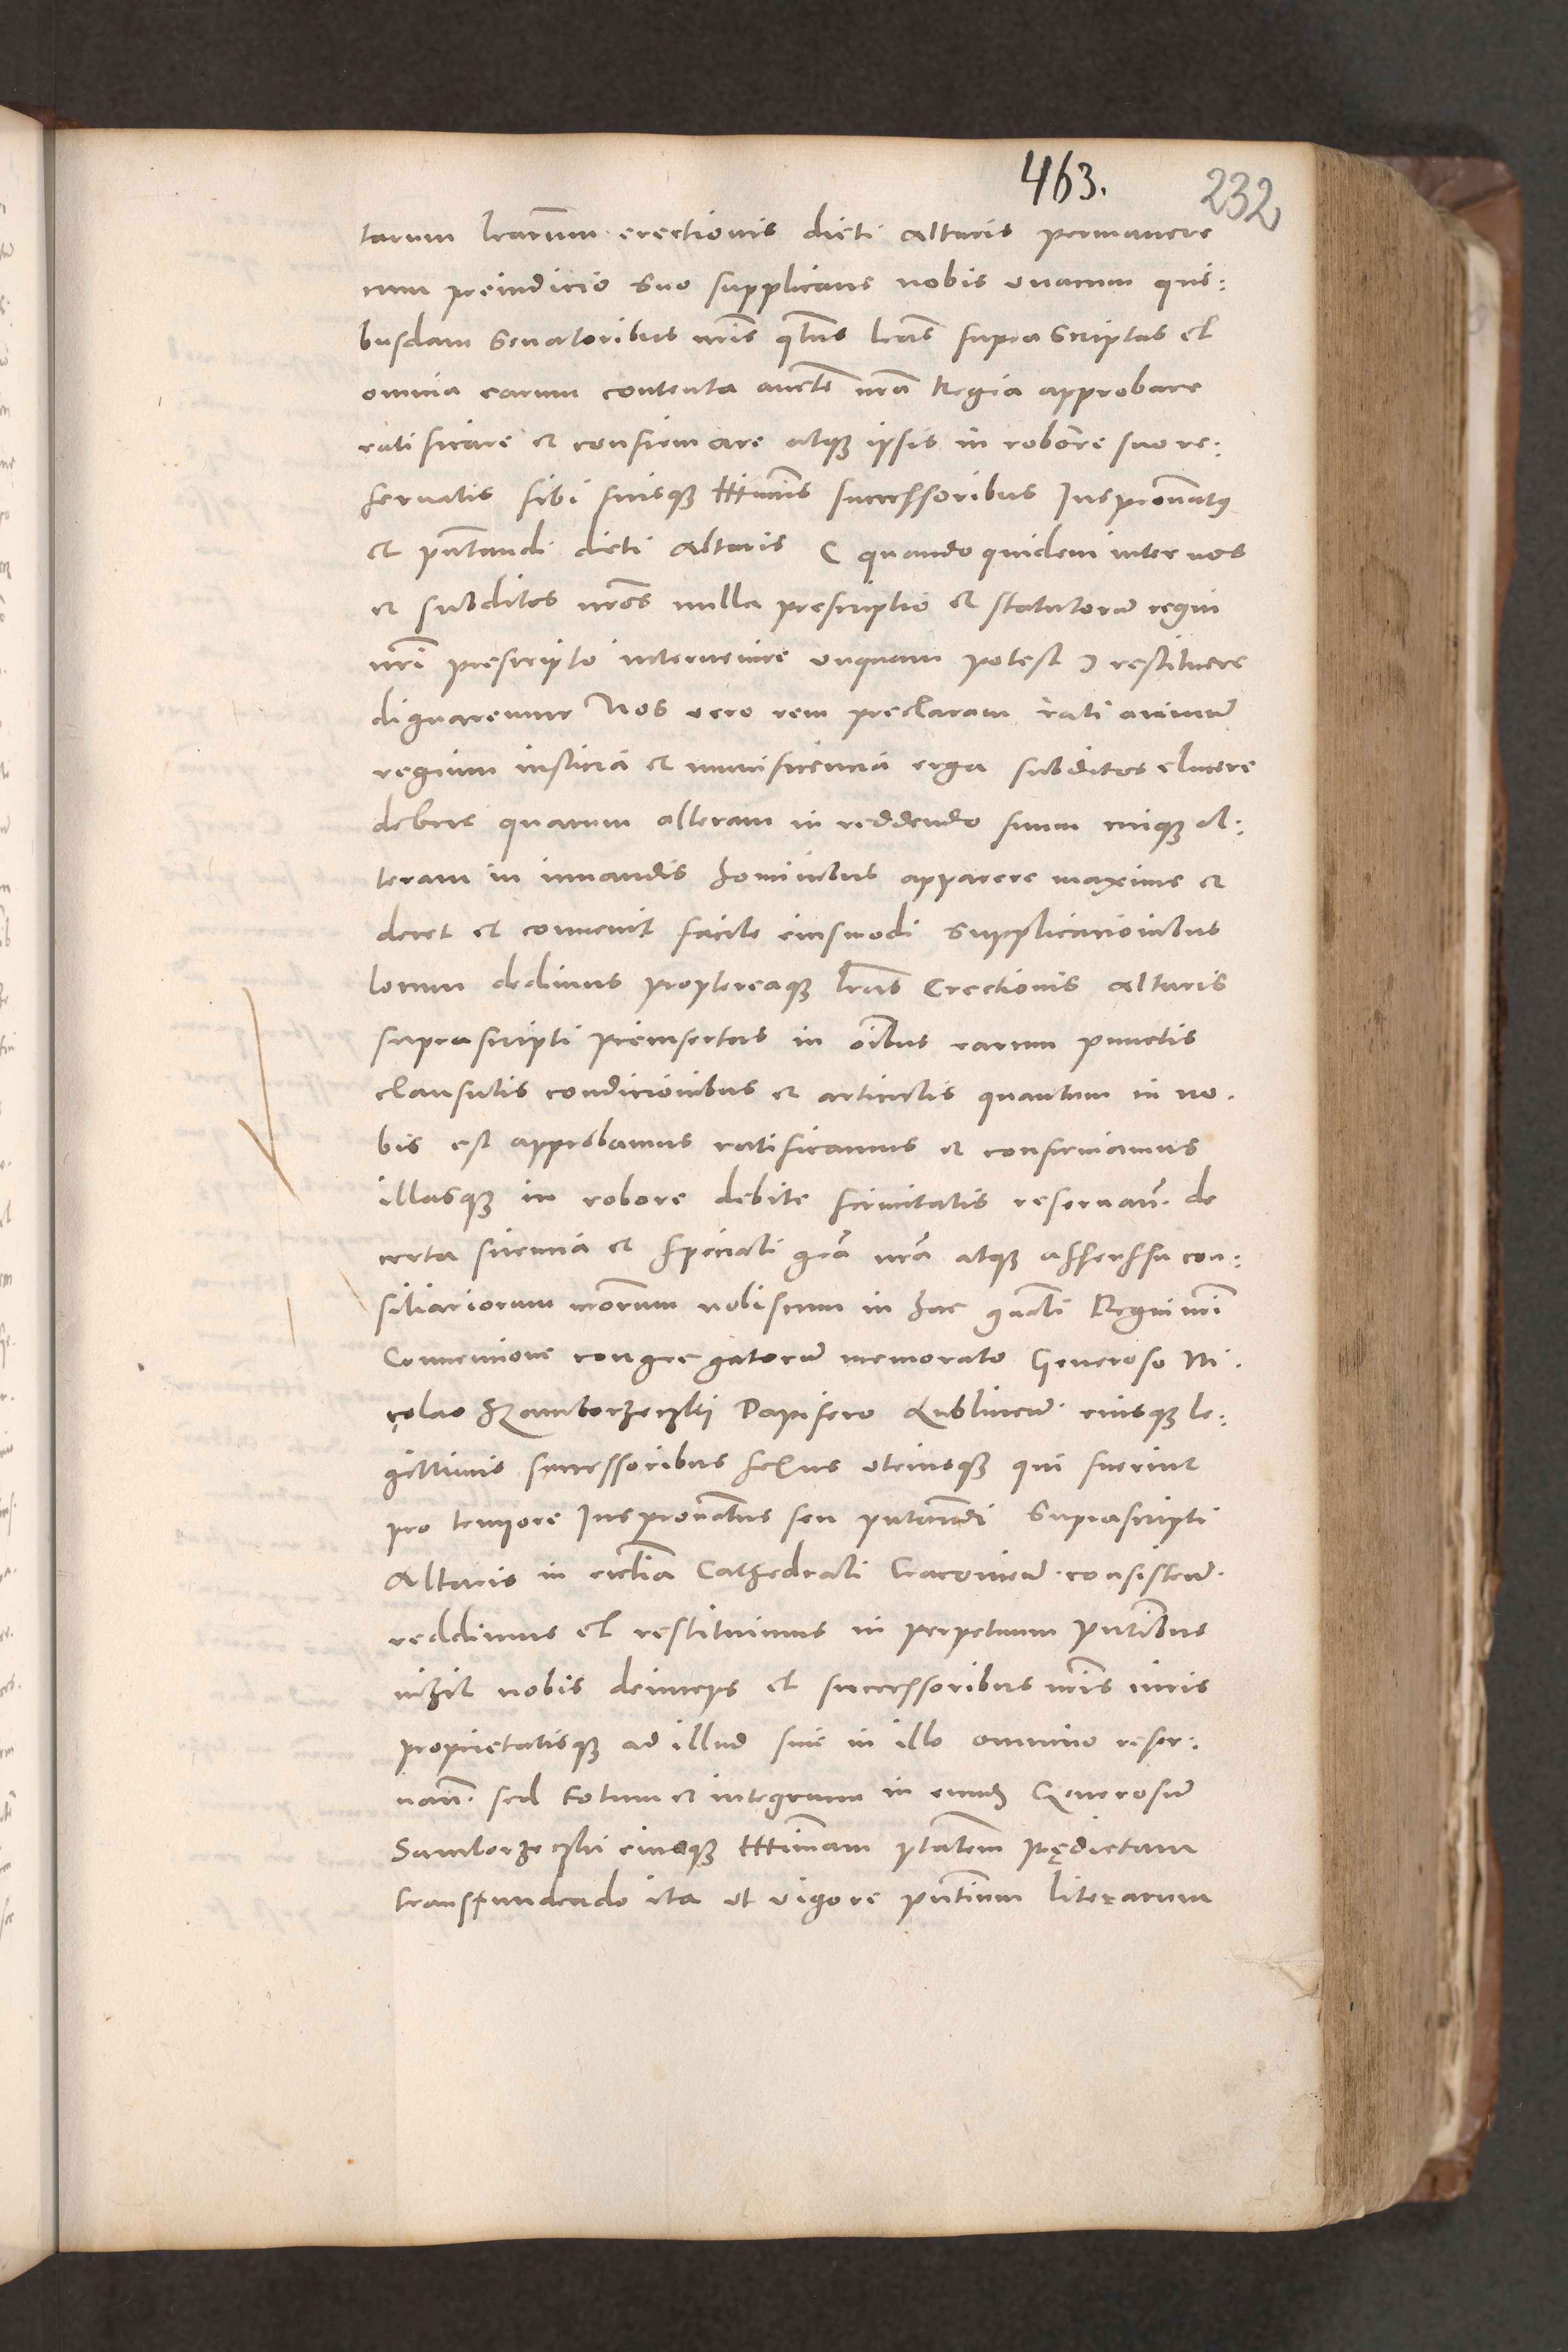 463.
232
tarum lrarum erectionis dicti Altaris permanere
cum preiudicio suo supplicans nobis unacum qui:
busdam Senatoribus nris qtnus lras supra scriptas et
omnia earum contenta aucte nra Regia approbare
ratificare et confirmare atque ipsis in robore suo re:
seruatis sibi suisque ltimis successoribus Iuspronatus
et pntandi dicti Altaris ( quandoquidem inter nos
et subditos nros nulla prescriptio et statutorum regni
nri prescripto interuenire unquam potest ) restituere
dignaremur Nos vero rem preclaram rati animum
regium iusticia et munificencia erga subditos elucere
debere quarum alteram in reddendo suum cuique al:
teram in iuuandis hominibus apparere maxime et
decet et conuenit facile eiusmodi supplicacionibus
locum dedimus proptereaque lras Erectionis Altaris
suprascripti preinsertas in oibus earum punctis
clausulis condicionibus et articulis quantum in no.
bis est approbamus ratificamus et confirmamus
illasque in robore debite firmitatis reseruan. de
certa sciencia et speciali gra nra atque assensu con:
siliariorum nrorum nobiscum in hac gnali Regni nri
Conuencione congregatorum memorato Generoso Ni.
colao Szamborzeczki Dapifero Lublinen. eiusque le:
gittimis successoribus sexus utriusque qui fuerint
pro tempore Iuspronatus seu pntandi suprascripti
Altaris in ecclia Cathedrali Cracouien. consisten.
reddimus et restituimus in perpetuum pntibus
nihil nobis deinceps et successoribus nris iuris
proprietatisque ad illud siue in illo omnino reser:
uan. sed totum et integrum in eund. Generosum
Samborzeczki eiusque ltimam pltatem predictam
transfundendo ita ut vigore pntium literarum